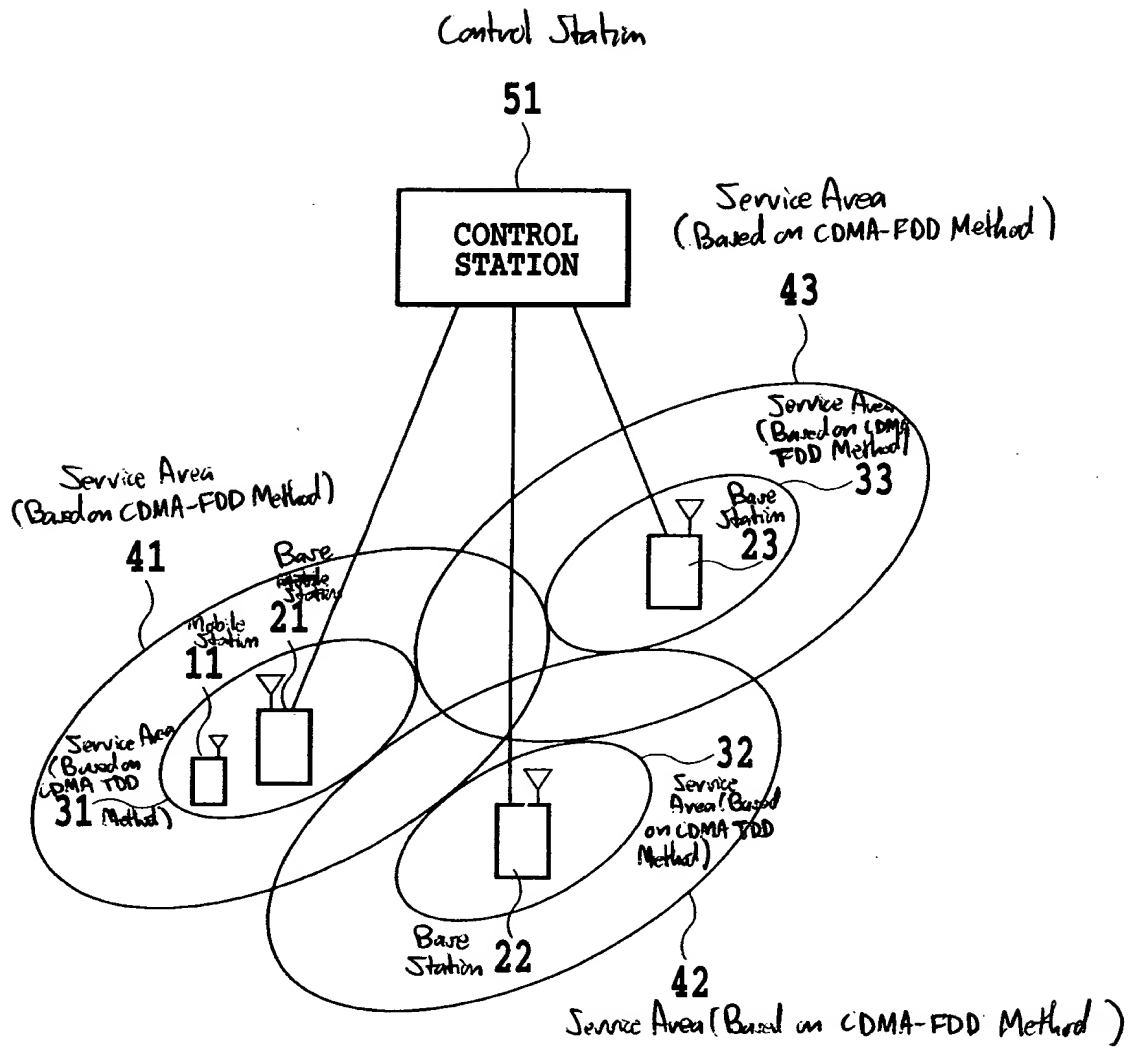 Control Station
51
CONTROL
STATION
Service Area
(Based on CDMA-FDD Method)
43
Service Area
(Based on CDMA
FDD Method)
33
Base
Station
23
Service Area
(Based on CDMA-FDD Method)
41
Base
Mobile
Station
21
Mobile
Station
11
Service Area
(Based on
CDMA TDD
Method)
31
32
Service
Area (Based
on CDMA TDD
Method)
Base
Station
22
42
Service Area (Based on CDMA-FDD Method)